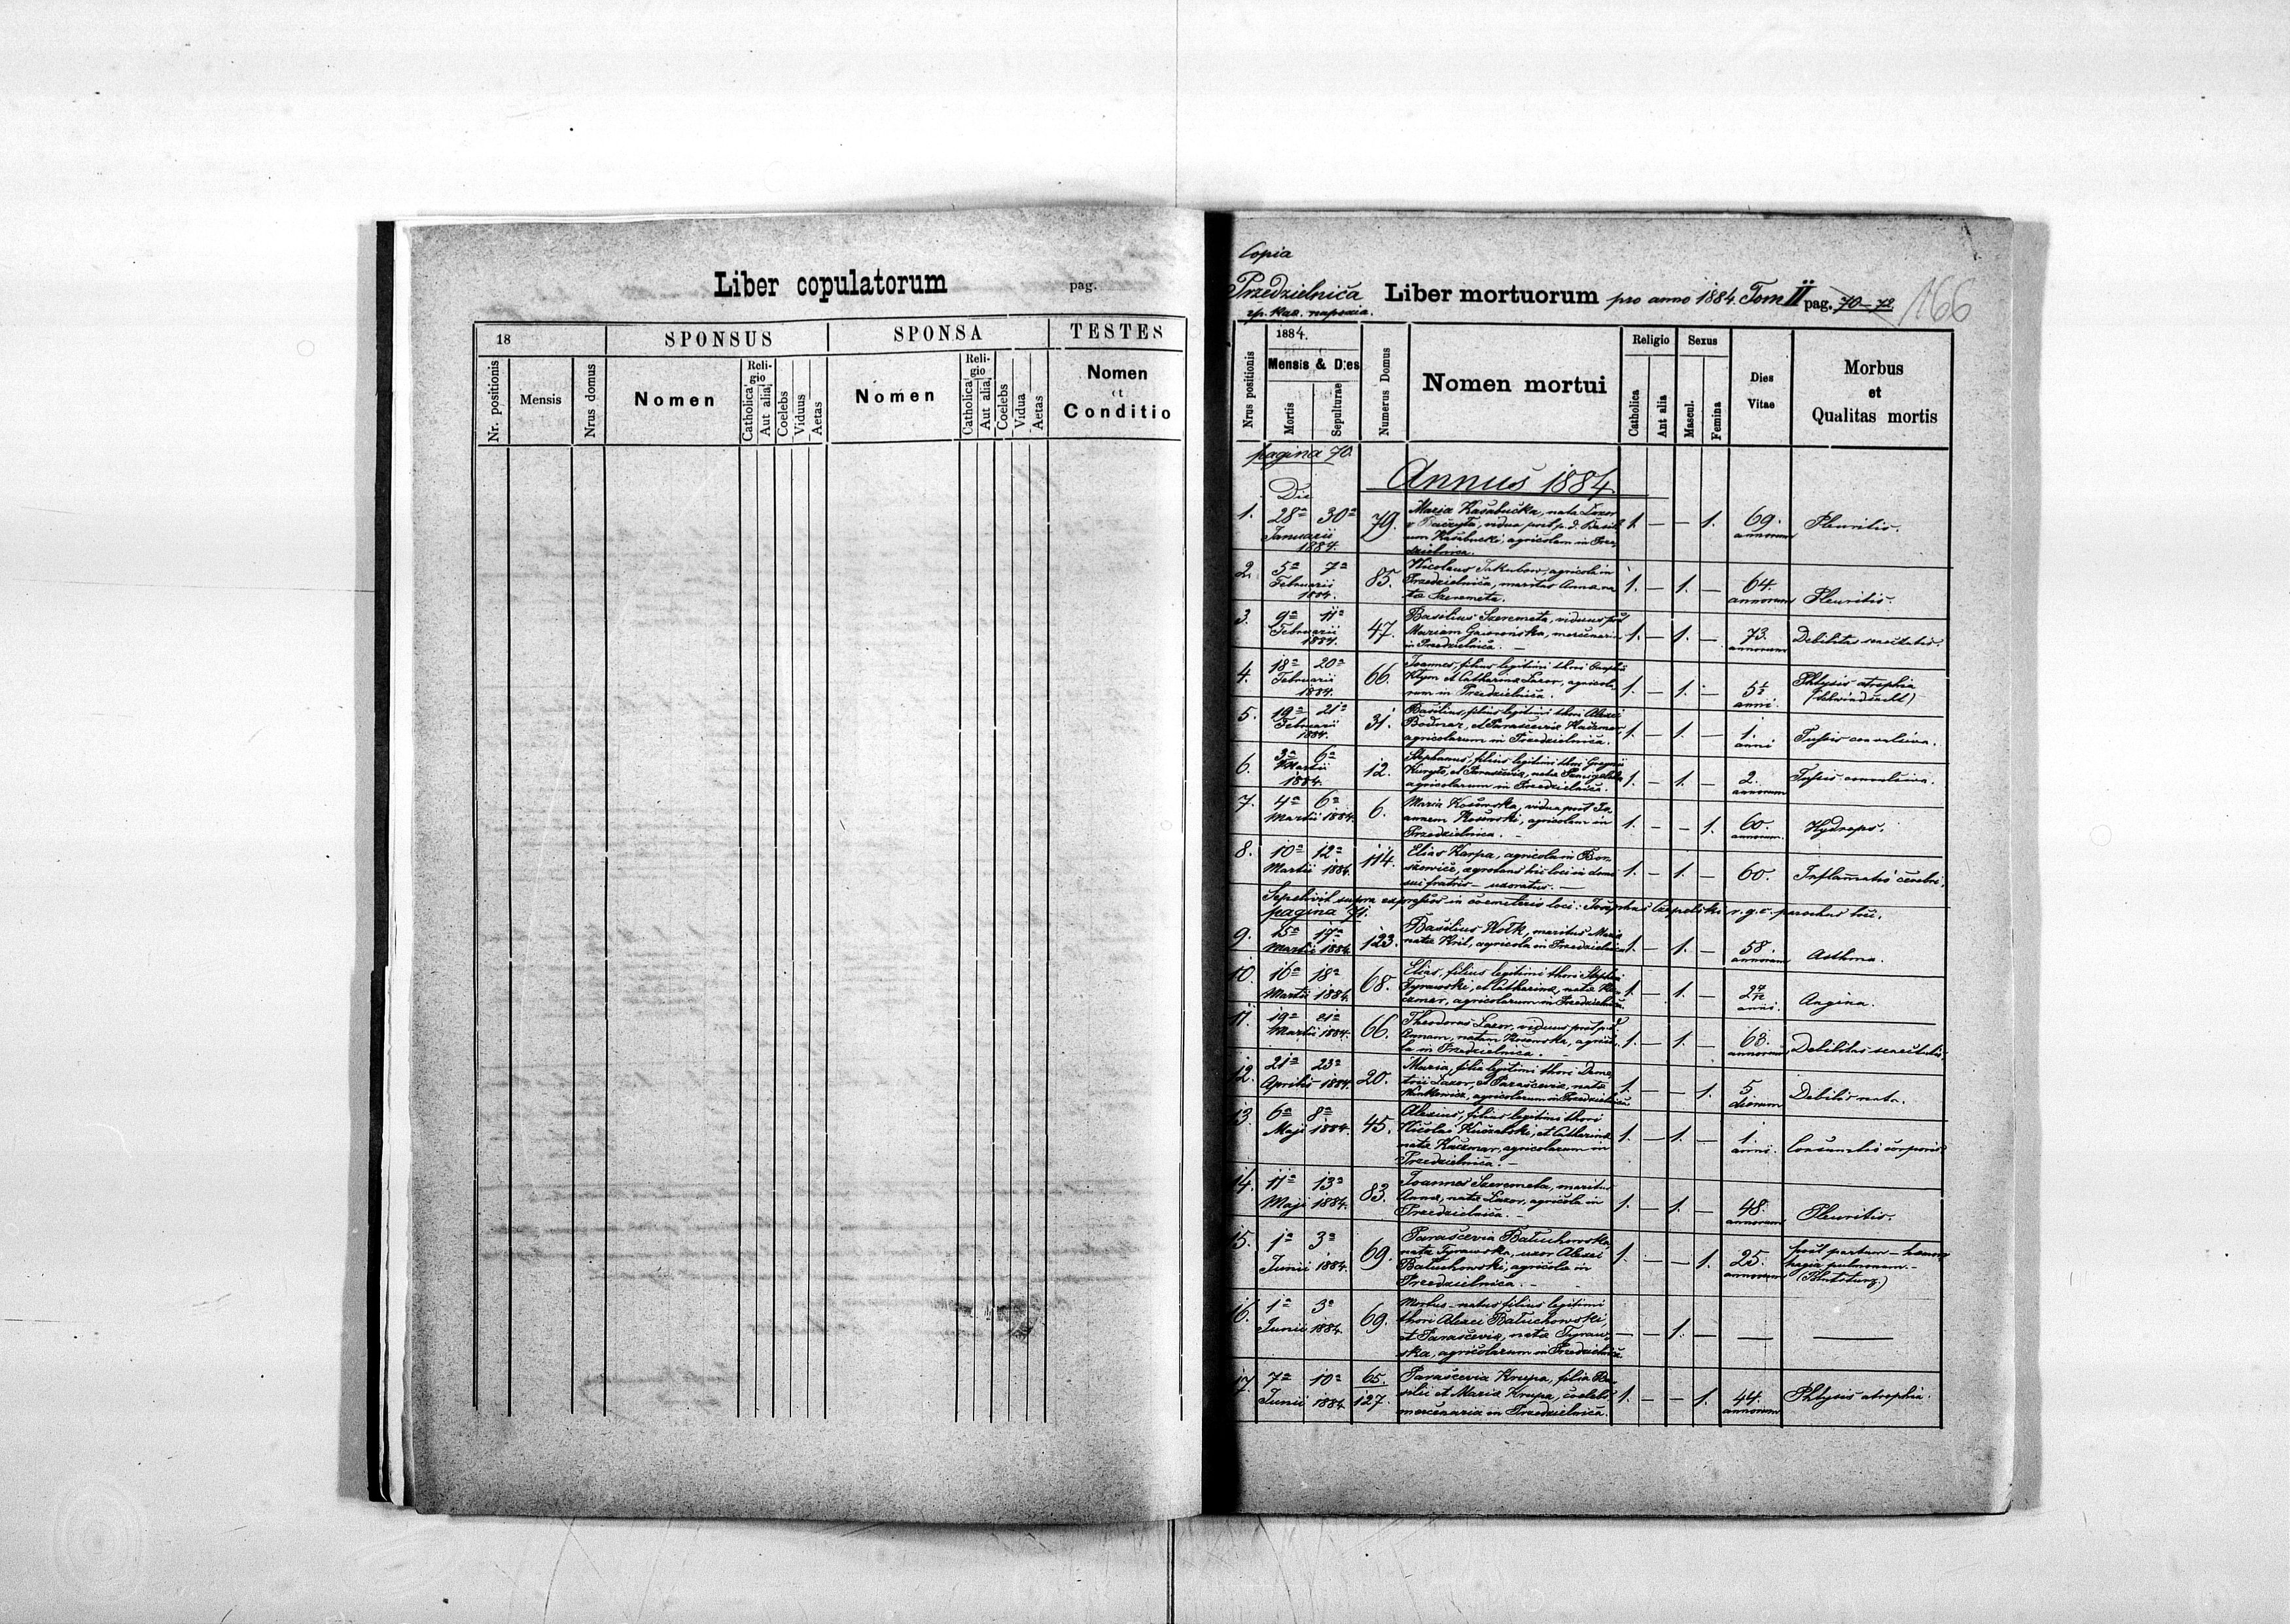 Liber copulatorum
pag.
18
SPONSUS
SPONSA
TESTES
Nr. positionis
Mensis
Nrus domus
Nomen
Religio
Catholica
Aut alia
Coelebs
Viduus
Aetas
Nomen
Religio
Catholica
Aut alia
Coelebs
Vidua
Aetas
Nomen
et
Conditio
Copia
Przedzielnica
Liber mortuorum pro anno 1884. Tom II pag. 70-72
166
Nrus positionis
1884.
Mensis & Dies
Mortis
Sepulturae
Numerus Domus
Nomen mortui
Religio
Catholica
Aut alia
Sexus
Mascul.
Femina
Dies
Vitae
Morbus
et
Qualitas mortis
pagina 70.
Annus 1884
Die
1. 28a 30a Januarii 1884. 79.
Maria Kasabucka, nata Lazor
vidua post p. d. Basili
um Kasabucki, agricolam in Prze
dzielnica.
1. — — 1. 69. annorum Pleuritis.
2. 5a 7a Februarii 1884. 85.
Nicolaus Jakubow, agricola in
Przedzielnica, maritus Annae na
tae Szeremeta.
1. — 1. — 64. annorum Pleuritis.
3. 9a 11a Februarii 1884. 47.
Basilius Szeremeta, viduus post
Mariam
in Przedzielnica. —
1. — 1. — 73. annorum Debilitas senectutis.
4. 18a 20a Februarii 1884. 66.
Joannes, filius legitimi thori
Klym et Catharinae Lazor, agricola
rum in Przedzielnica.
1. — 1. — anni. Phtysis atrophia
5. 19a 21a Februarii 1884. 31.
Basilius, filius legitimi thori Alexii
Bodnar, et Parasceviae Kaczmar
agricolarum in Przedzielnica.
1. — 1. — 1. anni Tussis convulsiva.
6. 3a 6a Martii 1884. 12.
Stephanus, filius legitimi thori Gregorii
et Parasceviae, natae
agricolarum in Przedzielnica.
1. — 1. — 2. annorum Tussis convulsiva.
7. 4a 6a Martii 1884. 6.
Maria Kosowska, vidua post Jo
annem Kosowski, agricolam in
Przedzielnica. —
1. — — 1. 60. annorum. Hydrops.
8. 10a 12a Martii 1884. 114.
Elias Karpa, agricola in Bor
szowice, aegrotans his loci in domo
sui fratris — uxoratus. —
1. — 1. — 60. Inflamatio cerebri.
Sepelivit supra expressos in coemeterio loci: Josephus Czapelski r. g. c. parochus loci.
pagina 71.
9. 15a 17a Martii 1884. 123.
Basilius Wolk, maritus Mariae
natae Kril, agricola in Przedzielnica
1. — 1. — 58. annorum Asthma.
10. 16a 18a Martii 1884. 68.
Elias, filius legitimi thori Stephani
Tyrawski, et Catharinae, natae Ka
czmar, agricolarum in Przedzielnica.
1. — 1. — anni. Angina.
11. 19a 21a Martii 1884. 66.
Theodorus Lazor, viduus post p. d.
Annam, natam Kosowska, agrico
la in Przedzielnica.
1. — 1. — 68. annorum Debilitas senectutis.
12. 21a 23a Aprilis 1884. 20.
Maria, filia legitimi thori Deme
trii Lazor, et Parasceviae, natae
agricolarum in Przedzielnica
1. — — 1. 5 dierum Debilis nata.
13. 6a 8a Maji 1884. 45.
Alexius, filius legitimi thori
Nicolai Kuczabski, et Catharinae
natae Kaczmar, agricolarum in
Przedzielnica. —
1. — 1. — 1. anni. Consumtio corporis
14. 11a 13a Maji 1884. 83.
Joannes Szeremeta, maritus
Annae, natae Lazor, agricola in
Przedzielnica. —
1. — 1. — 48. annorum Pleuritis.
15. 1a 3a Junii 1884. 69.
Parascevia Batuchowska,
nata Tyrawska, uxor Alexii
Batuchowski, agricola in
Przedzielnica. —
1. — — 1. 25. annorum post partum —
pulmonum. —
16. 1a 3a Junii 1884 69.
Mortuus-natus filius legitimi
thori Alexii Batuchowski,
et Parasceviae, natae Tyraw
ska, agricolarum in Przedzielnica
— — 1. — — —
17. 7a 10a Junii 1884 65. 127.
Parascevia Krupa, filia Ba
silii et Mariae Krupa, coelebs
mercenaria in Przedzielnica.
1. — — 1. 44. annorum Phtysis atrophia.